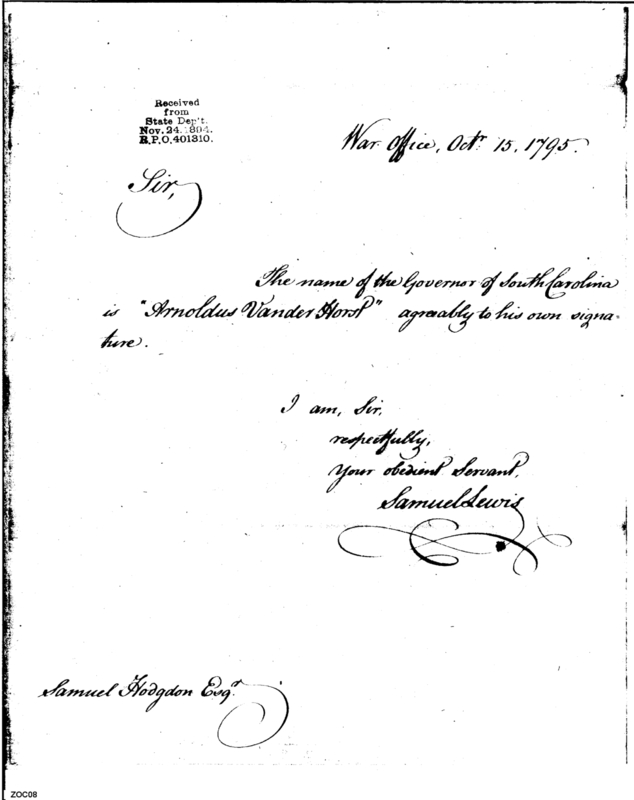 Received
from
State Dep't.
Nov. 24. 1894.
R.P.O. 401310.
War Office, Octr. 15, 1795.
Sir,
The name of the Governor of South Carolina
is "Arnoldus Vander Horst" agreably to his own signa-
ture.
I am, Sir,
respectfully,
your obedient Servant,
Samuel Lewis
Samuel Hodgdon Esqr.
ZOC08